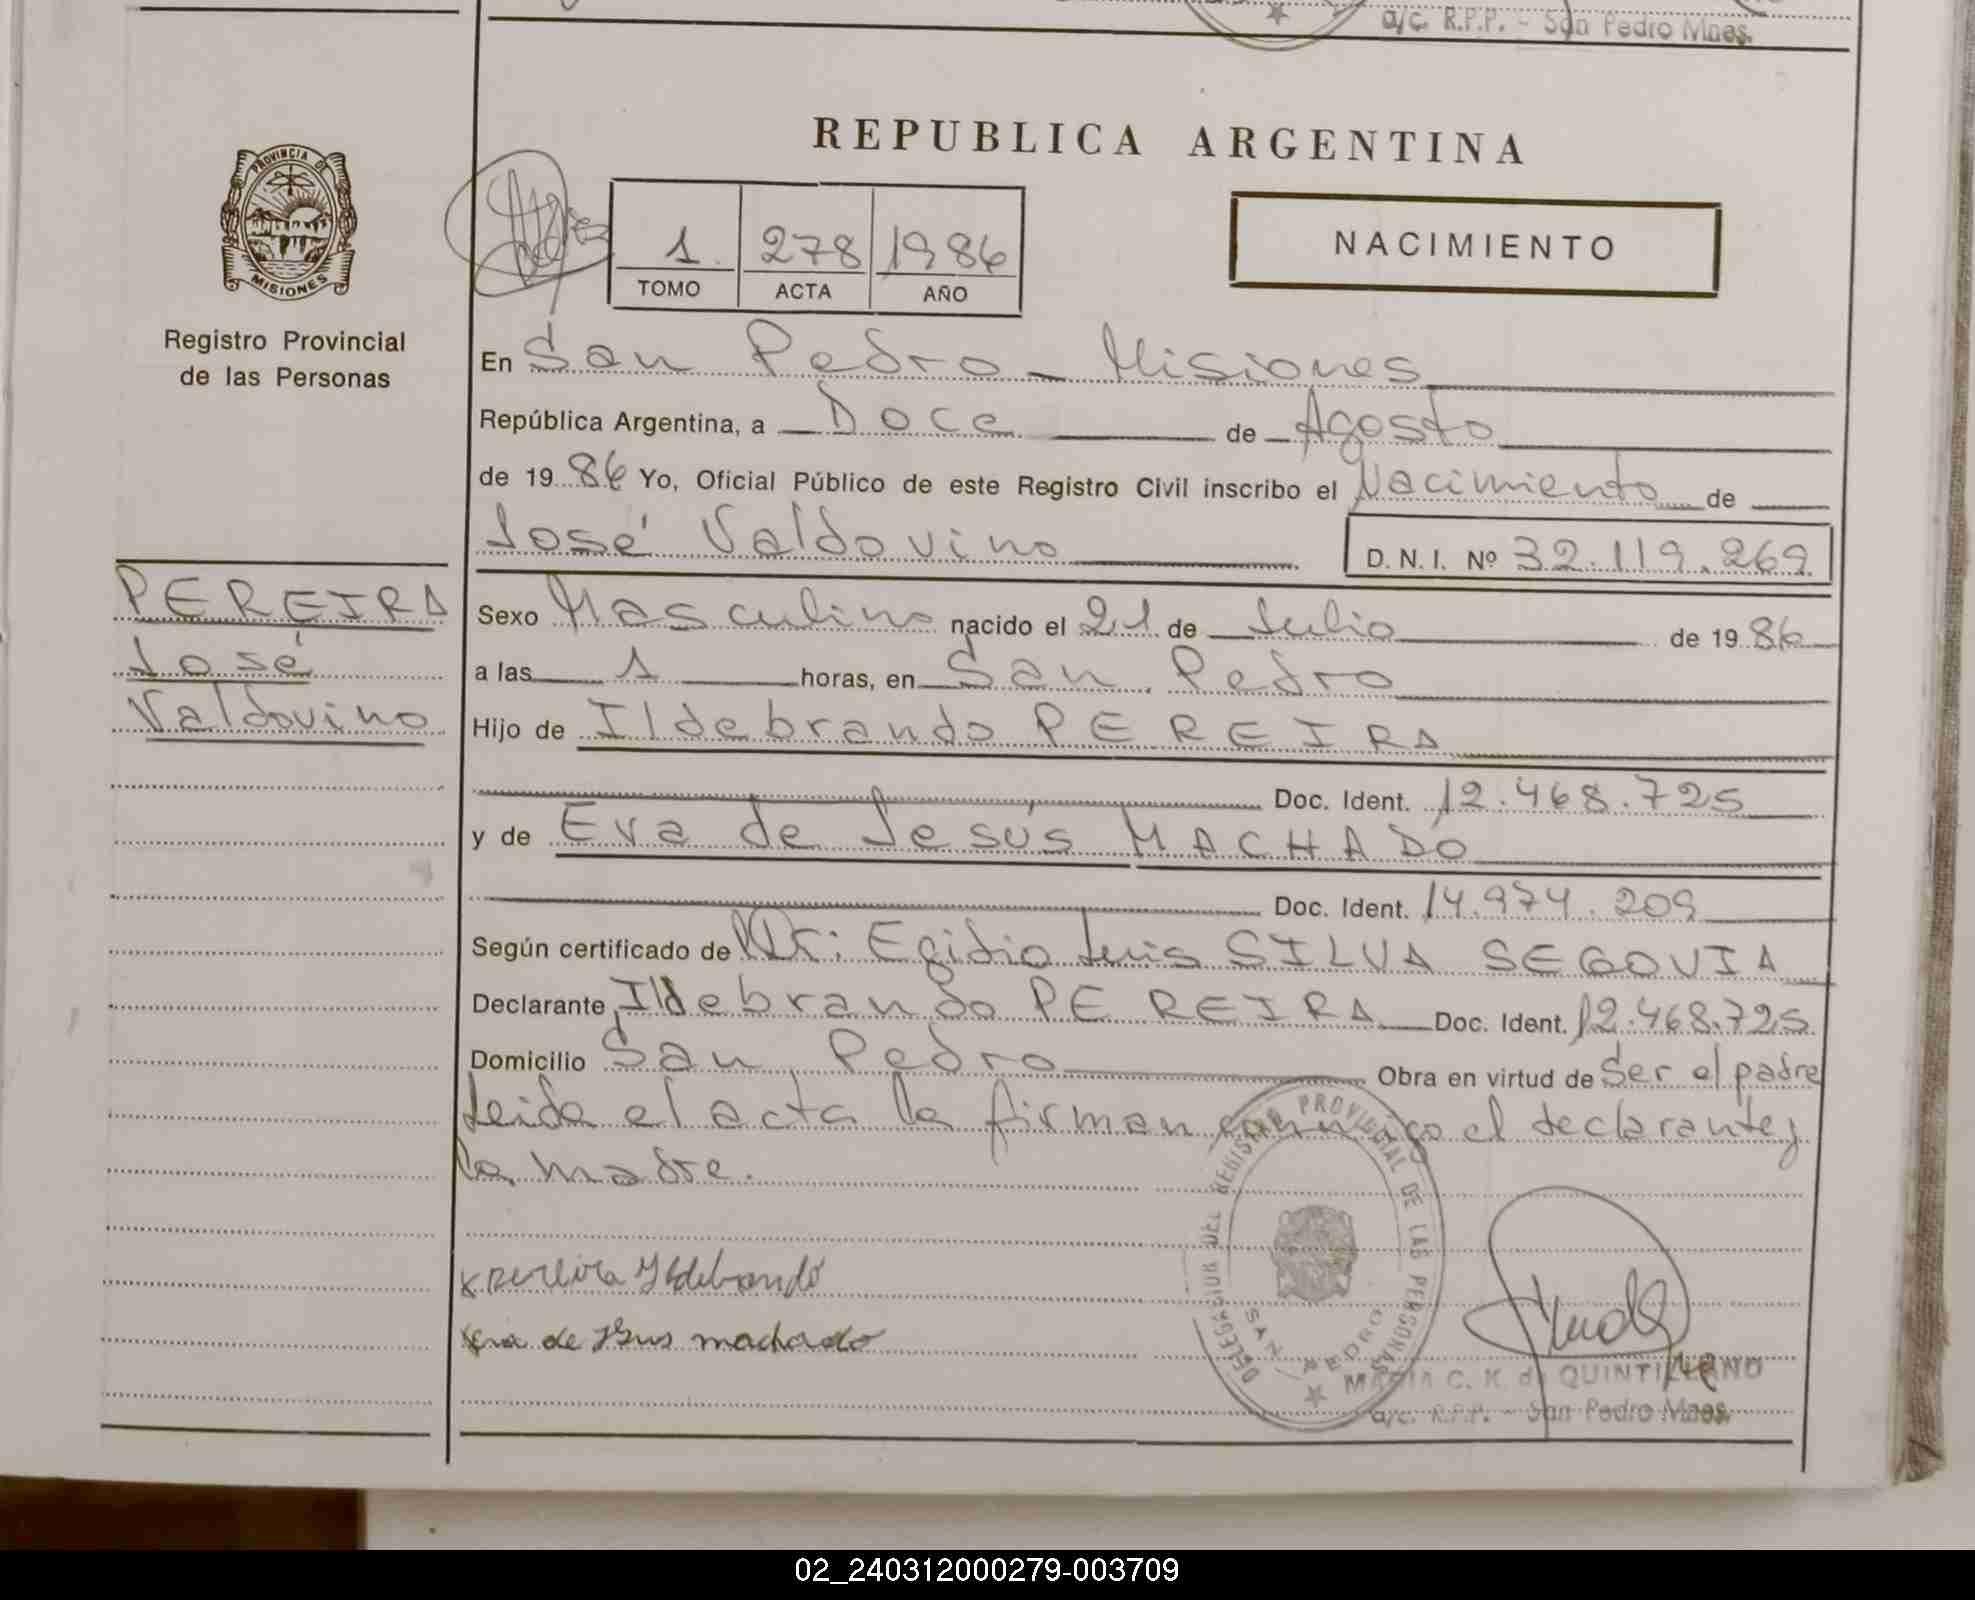 a/c. R.P.P. - San Pedro Mnes.
REPUBLICA ARGENTINA
PROVINCIA DE
MISIONES
Registro Provincial
de las Personas
1 278 1986
TOMO ACTA AÑO
NACIMIENTO
En San Pedro - Misiones
República Argentina, a Doce de Agosto
de 1986 Yo, Oficial Público de este Registro Civil inscribo el Nacimiento de
José Valdovino D.N.I. Nº 32.119.269
PEREIRA
José
Valdovino
Sexo Masculino nacido el 21 de Julio de 1986
a las 1 horas, en San Pedro
Hijo de Ildebrando PEREIRA
Doc. Ident. 12.468.725
y de Eva de Jesús MACHADO
Doc. Ident. 14.974.209
Según certificado de Dr: Egidio Luis SILVA SEGOVIA
Declarante Ildebrando PEREIRA Doc. Ident. 12.468.725
Domicilio San Pedro Obra en virtud de Ser el padre
Leida el acta la firman conmigo el declarante y
la madre.
x pereira Ildebrando
x Eva de Jesus machado
DELEGACION DEL REGISTRO PROVINCIAL DE LAS PERSONAS
SAN PEDRO
MARIA C. K. de QUINTILLANO
a/c. R.P.P. - San Pedro Mnes.
02_240312000279-003709